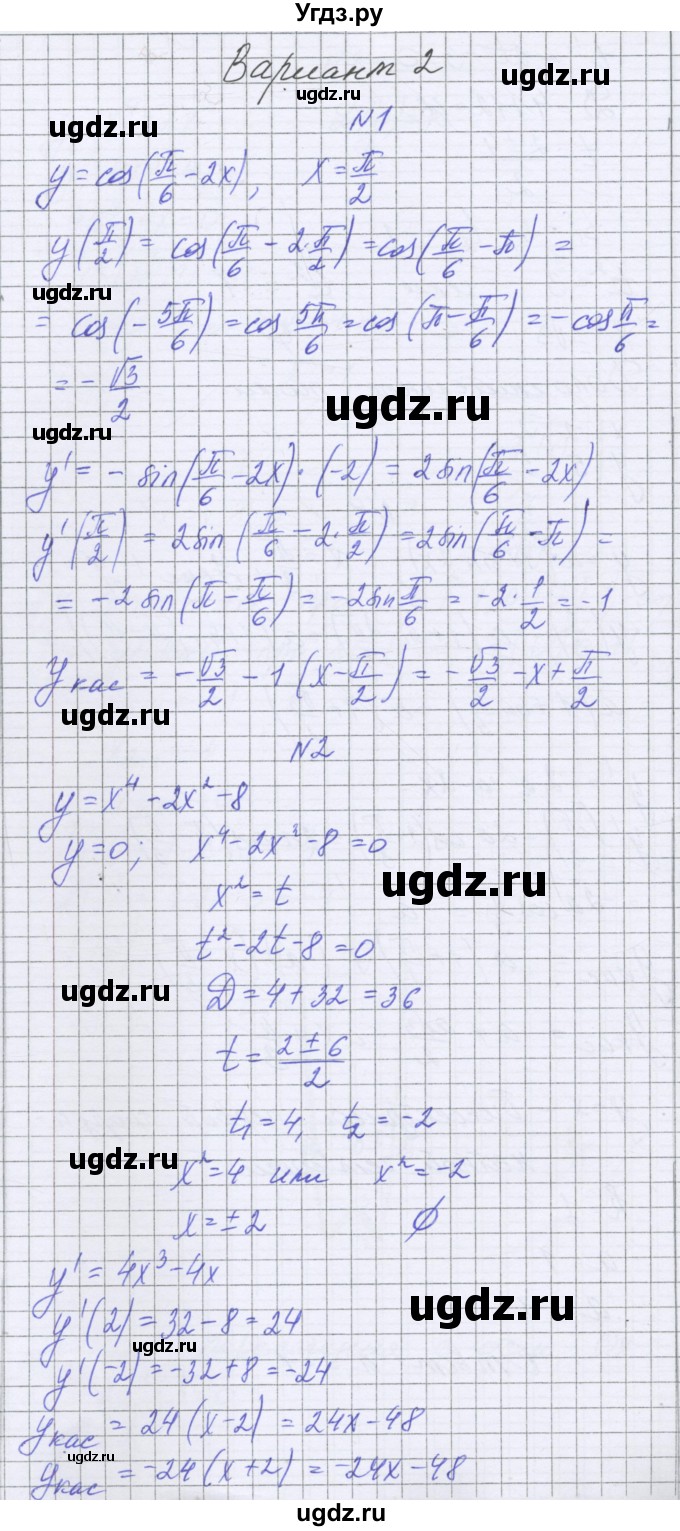 Угдз.ру
Вариант 2
ugdz.ru
ugdz.ru
ugdz.ru
N1
y = cos(π/6 - 2x), x = π/2
y(π/2) = cos(π/6 - 2·π/2) = cos(π/6 - π) =
ugdz.ru
= cos(-5π/6) = cos 5π/6 = cos(π - π/6) = -cos π/6 =
= -√3/2
ugdz.ru
ugdz.ru
y' = -sin(π/6 - 2x)·(-2) = 2sin(π/6 - 2x)
y'(π/2) = 2sin(π/6 - 2·π/2) = 2sin(π/6 - π) =
= -2sin(π - π/6) = -2sin π/6 = -2·1/2 = -1
yкас = -√3/2 - 1(x - π/2) = -√3/2 - x + π/2
ugdz.ru
N2
y = x⁴ - 2x² - 8
y = 0; x⁴ - 2x² - 8 = 0
ugdz.ru
x² = t
t² - 2t - 8 = 0
ugdz.ru
D = 4 + 32 = 36
t = (2 ± 6)/2
t₁ = 4, t₂ = -2
ugdz.ru
x² = 4 или x² = -2
x = ±2 ∅
y' = 4x³ - 4x
ugdz.ru
y'(2) = 32 - 8 = 24
ugdz.ru
y'(-2) = -32 + 8 = -24
yкас = 24(x - 2) = 24x - 48
ugdz.ru
yкас = -24(x + 2) = -24x - 48
ugdz.ru